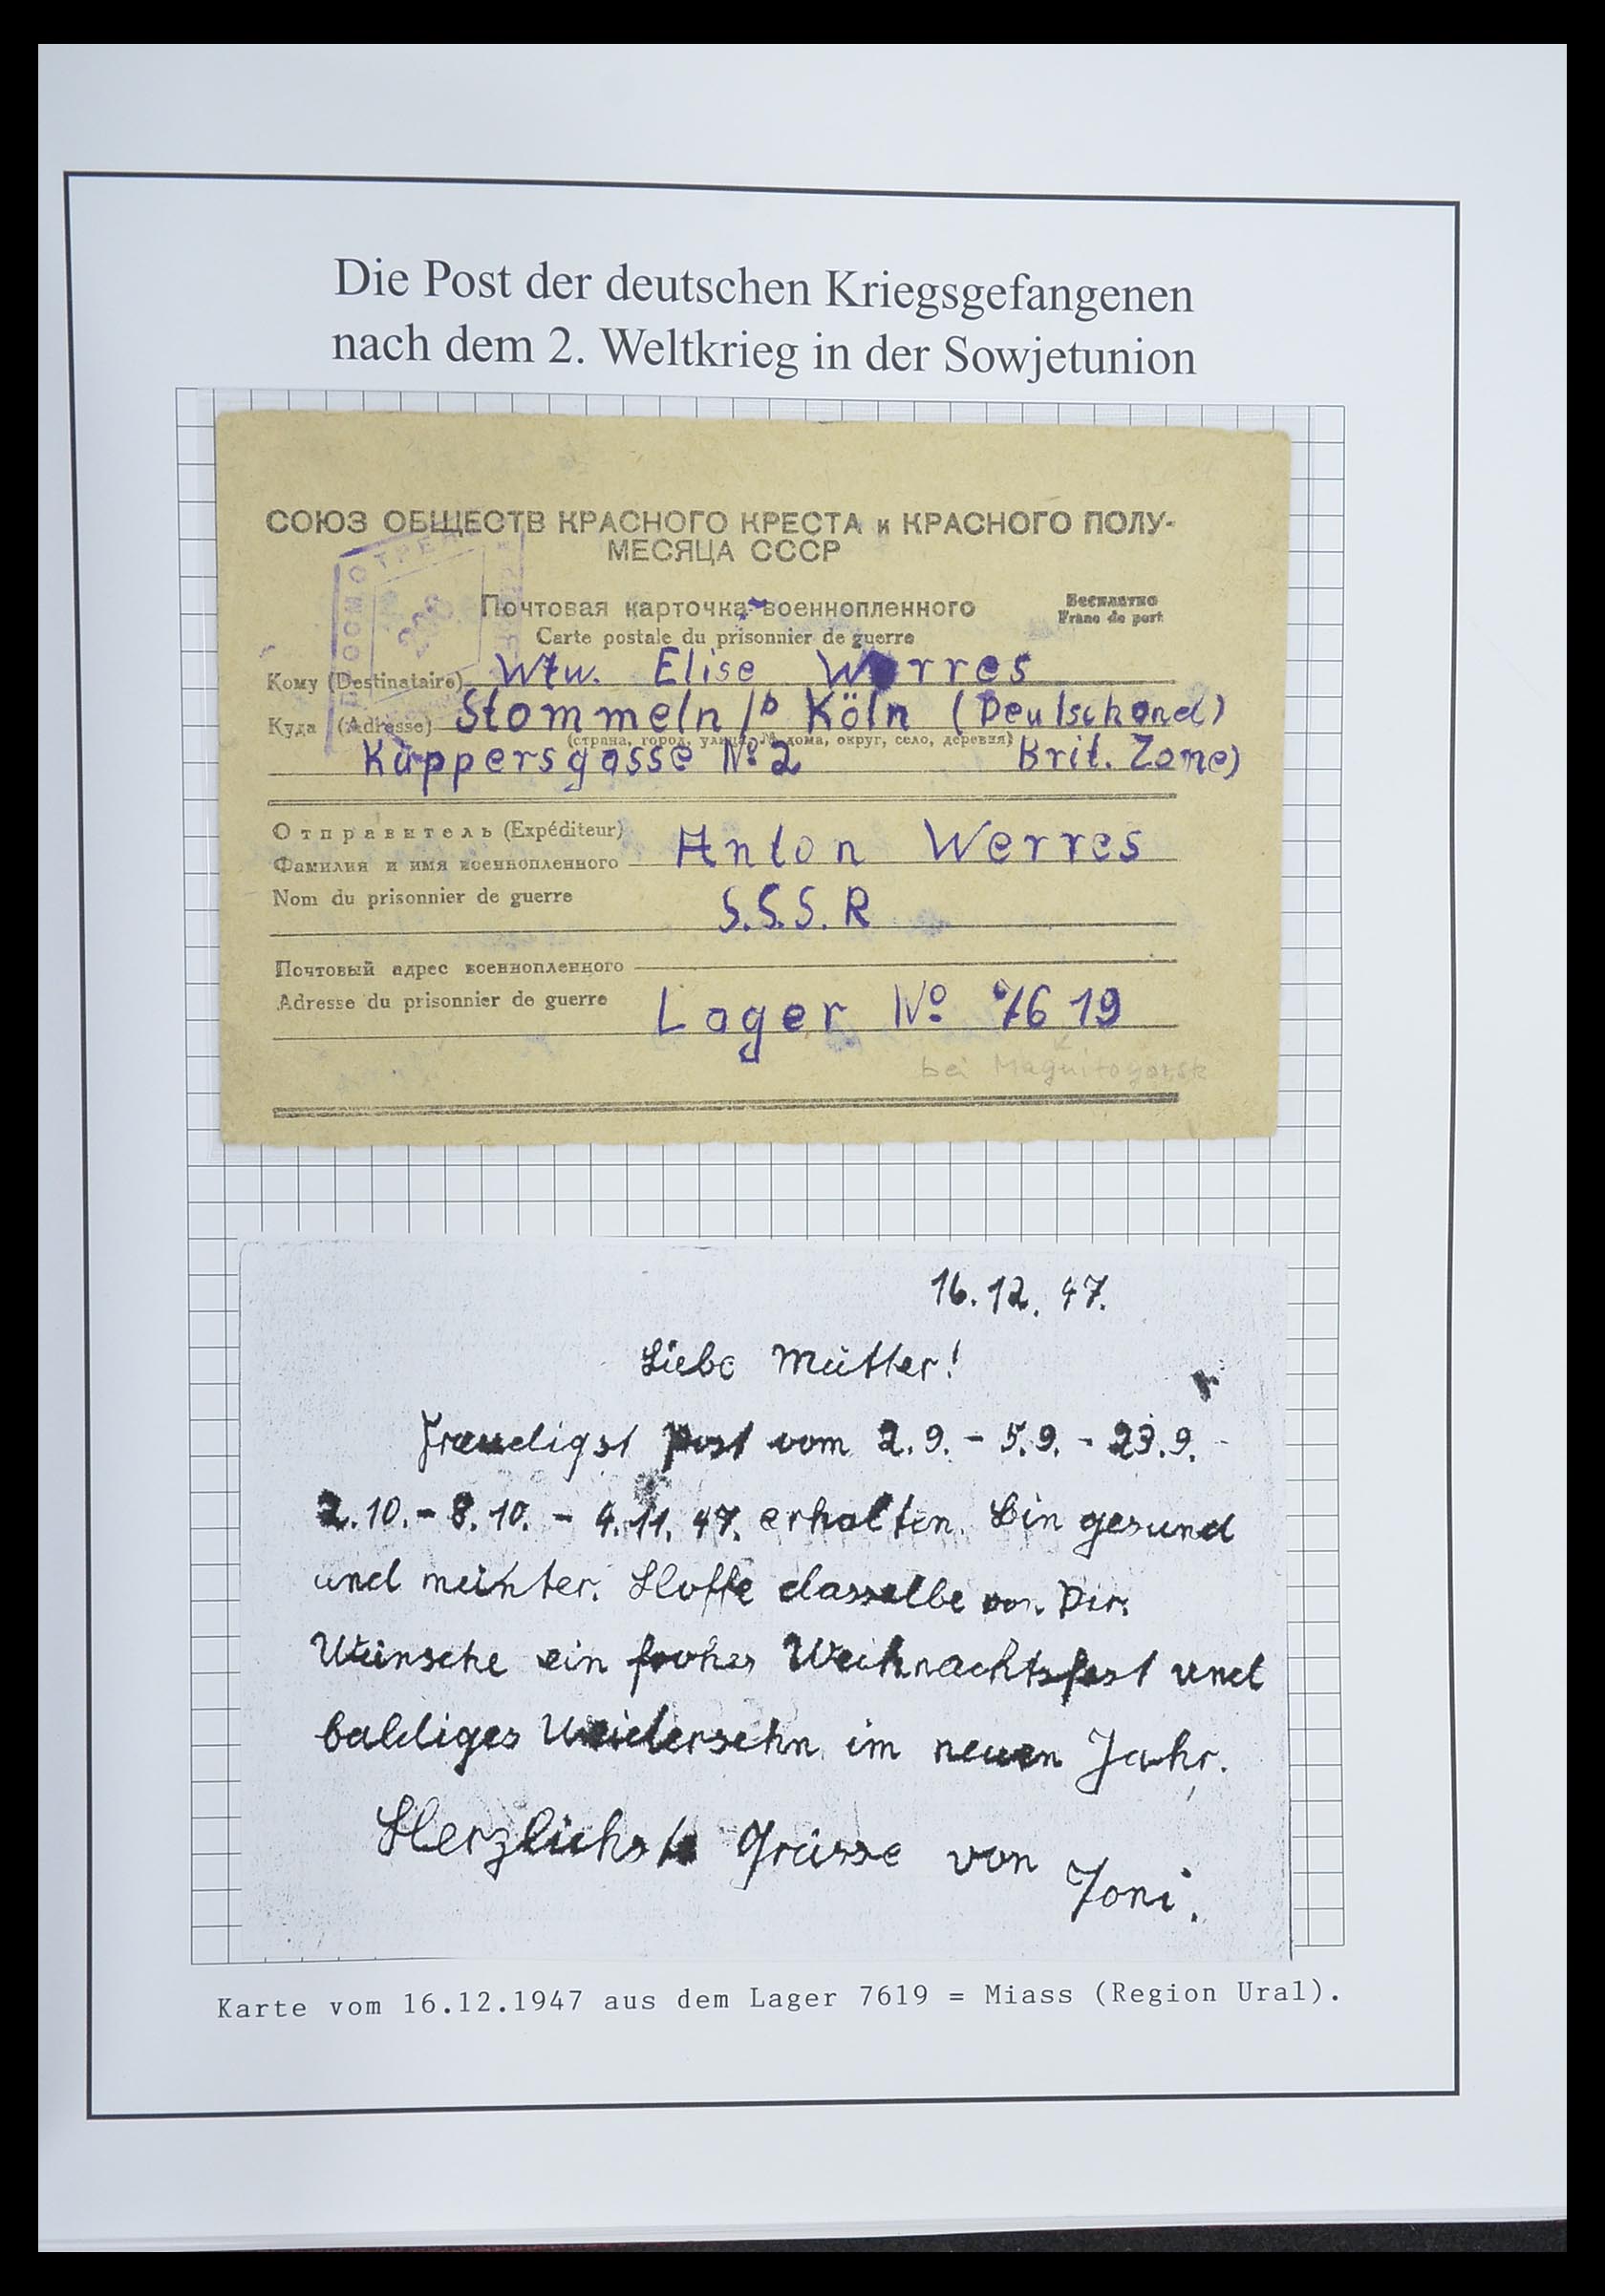 Die Post der deutschen Kriegsgefangenen
nach dem 2. Weltkrieg in der Sowjetunion
СОЮЗ ОБЩЕСТВ КРАСНОГО КРЕСТА и КРАСНОГО ПОЛУ-
МЕСЯЦА СССР
ПРОСМОТРЕНО
Почтовая карточка военнопленного
Бесплатно
Carte postale du prisonnier de guerre
Franc de port
Кому (Destinataire) Wtw. Elise Werres
Куда (Adresse) Stommeln /b Köln (Deutschand)
(страна, город, улица, № дома, округ, село, деревня)
Küppersgasse № 2 Brit. Zone)
Отправитель (Expéditeur)
Фамилия и имя военнопленного Anton Werres
Nom du prisonnier de guerre S.S.S.R
Почтовый адрес военнопленного
Adresse du prisonnier de guerre Lager № 7619
bei Magnitogorsk
16.12.47.
Liebe Mutter!
Freudigst Post vom 2.9. - 5.9. - 23.9. -
2.10. - 8.10. - 4.11.47. erhalten. Bin gesund
und munter. Hoffe dasselbe von Dir.
Wünsche ein frohes Weihnachtsfest und
baldiges Wiedersehn im neuen Jahr.
Herzlichste Grüsse von
Toni.
Karte vom 16.12.1947 aus dem Lager 7619 = Miass (Region Ural).